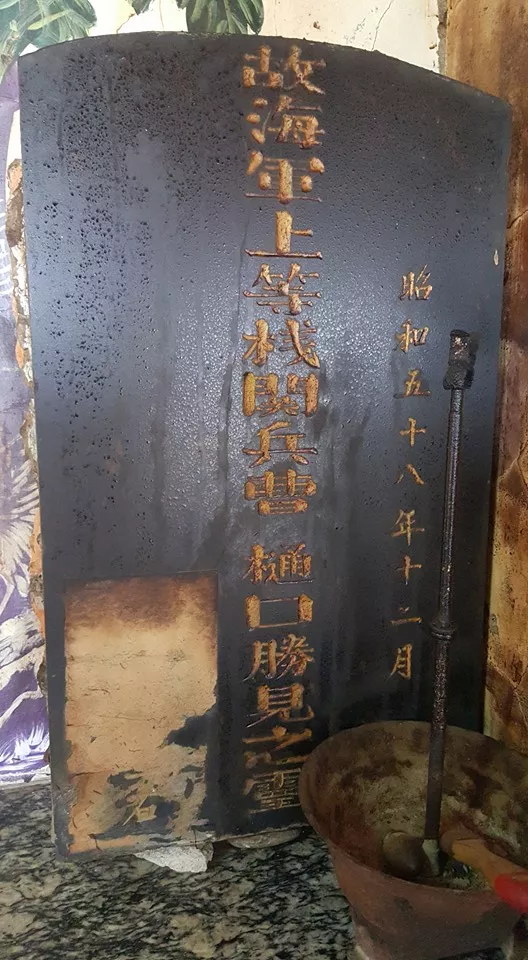 昭和五十八年十二月
故海軍上等机関兵曹 樋口勝見之霊